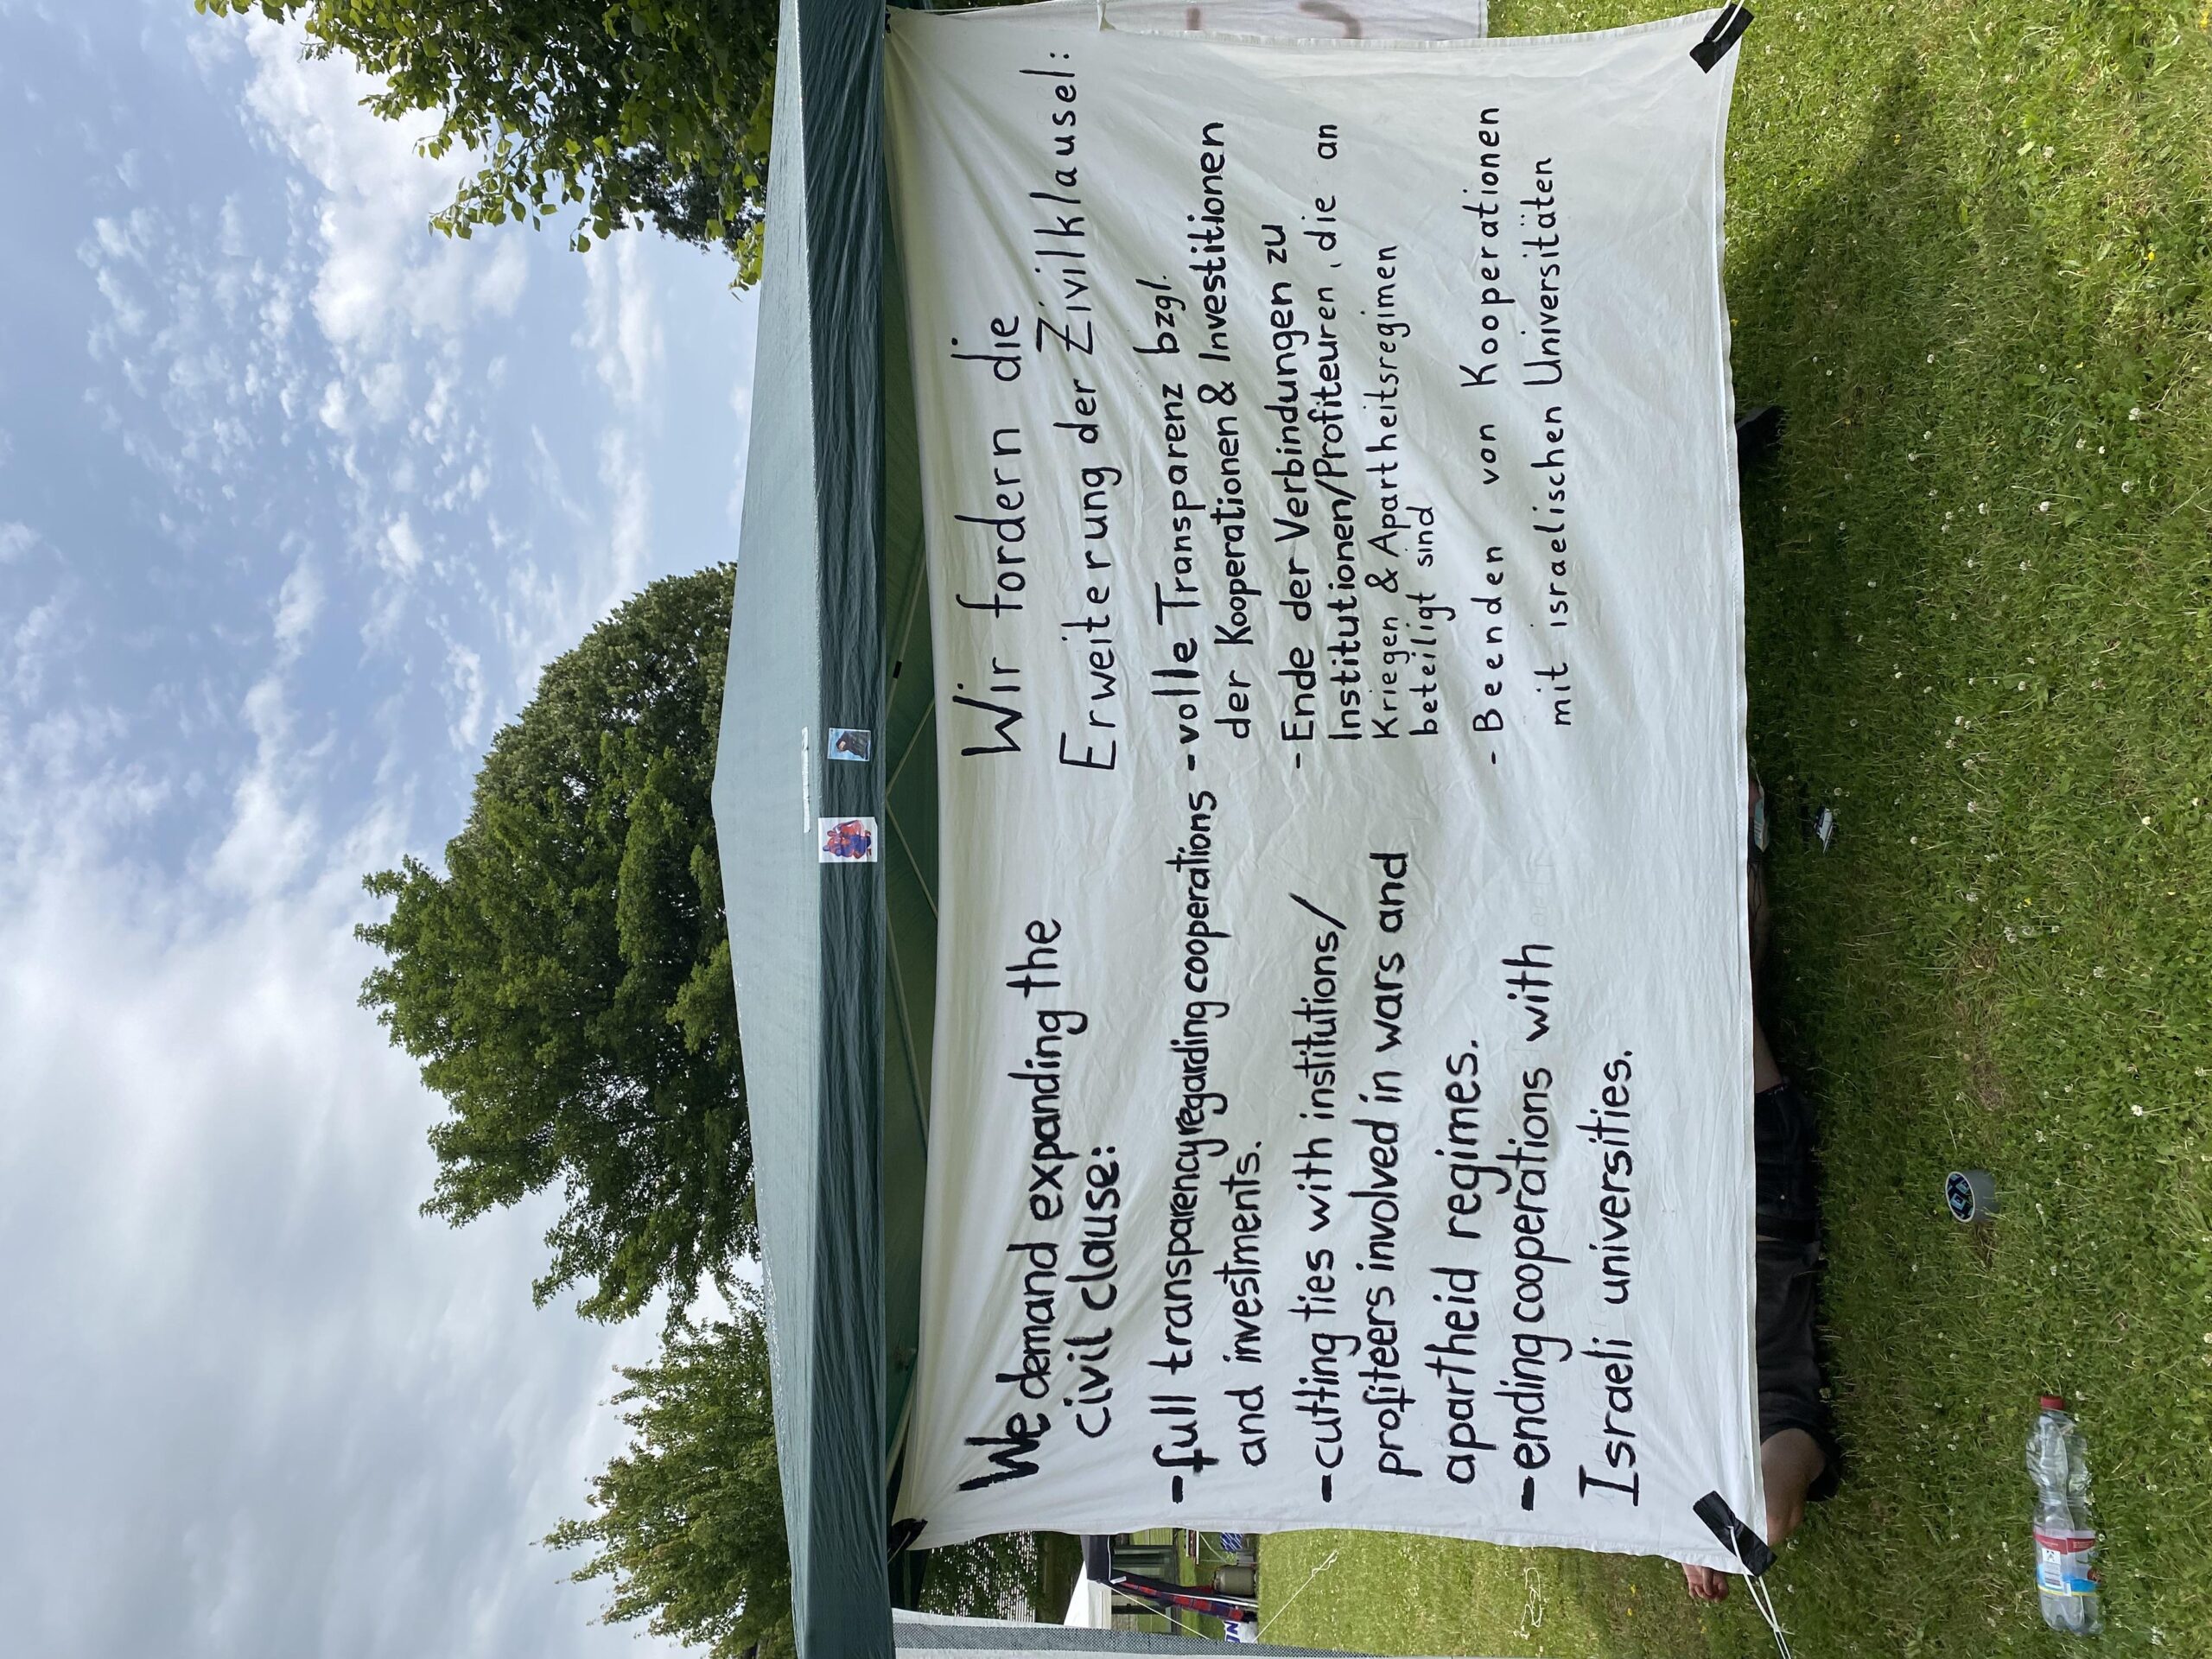 We demand expanding the
civil clause:
-full transparency regarding cooperations
and investments.
-cutting ties with institutions/
profiteers involved in wars and
apartheid regimes.
-ending cooperations with
Israeli universities.
Wir fordern die
Erweiterung der Zivilklausel:
-volle Transparenz bzgl.
der Kooperationen & Investitionen
-Ende der Verbindungen zu
Institutionen/Profiteuren, die an
Kriegen & Apartheitsregimen
beteiligt sind
-Beenden von Kooperationen
mit israelischen Universitäten